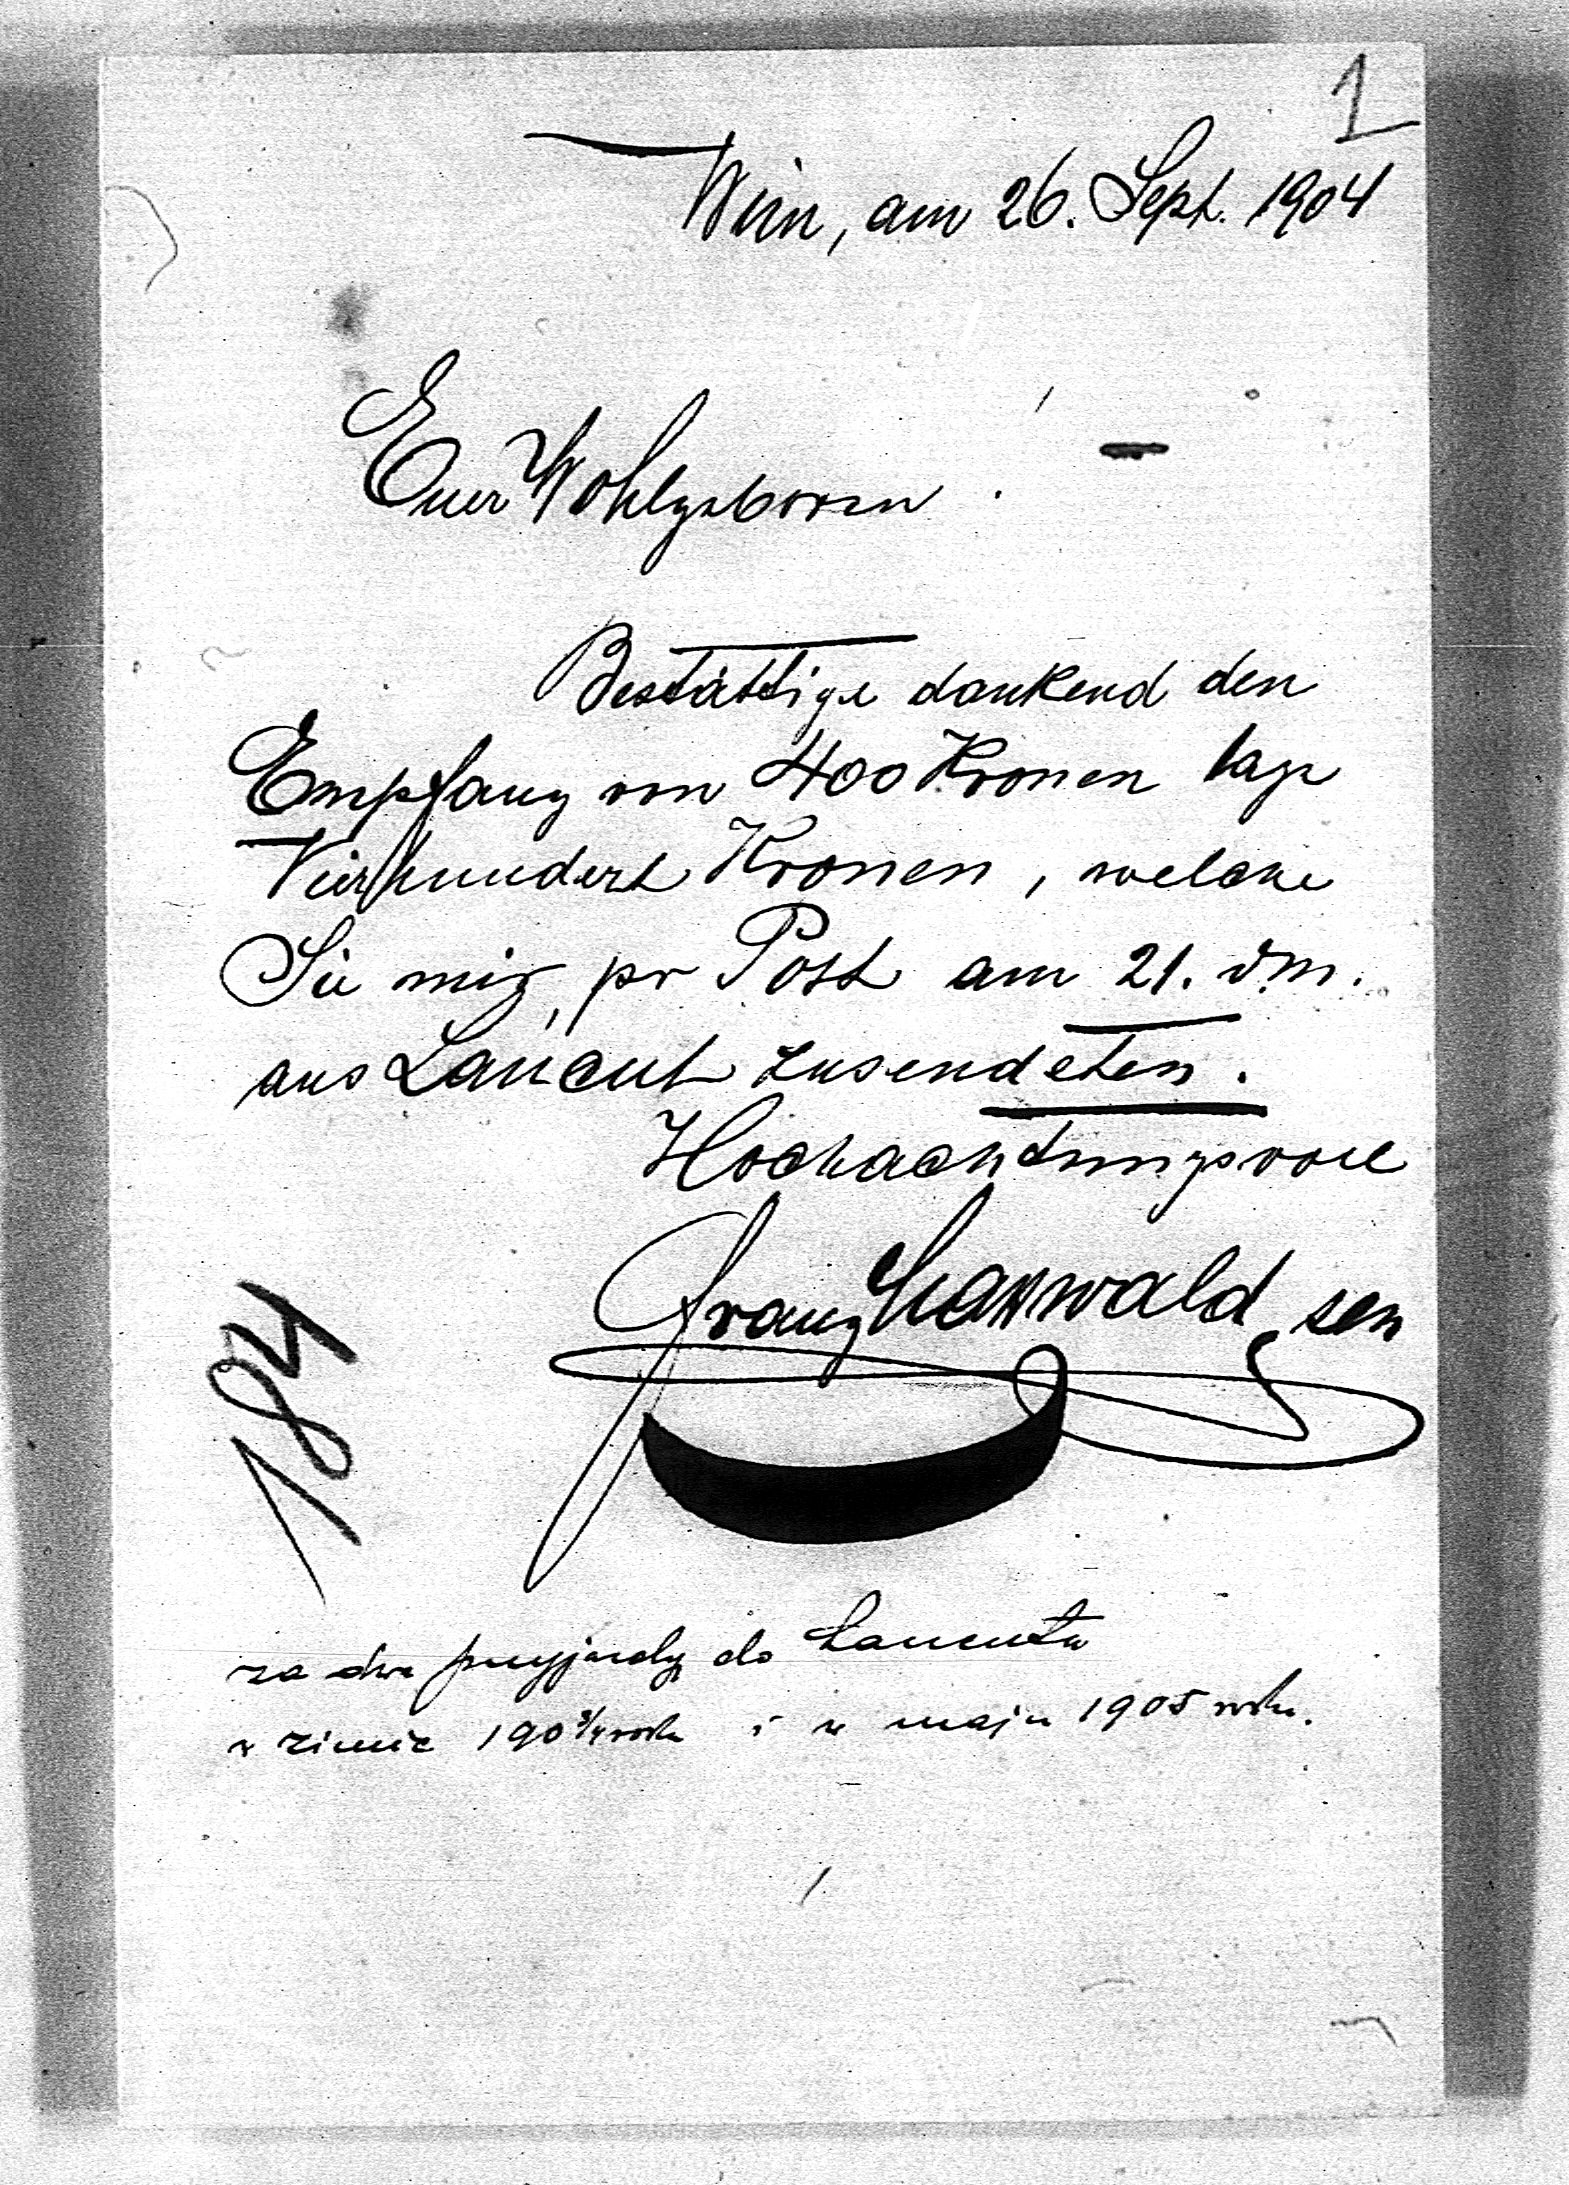 1
Wien, am 26. Sept. 1904
Euer Wohlgeboren
Bestättige dankend den
Empfang von 400 Kronen sage
Vierhundert Kronen, welche
Sie mir pr Post am 21. d.m.
aus Łańcut zusendeten.
Hochachtungsvoll
Franz sen
184
za dwa przyjazdy do Łańcuta
w zimie 190 3/4 roku i w maju 1905 roku.